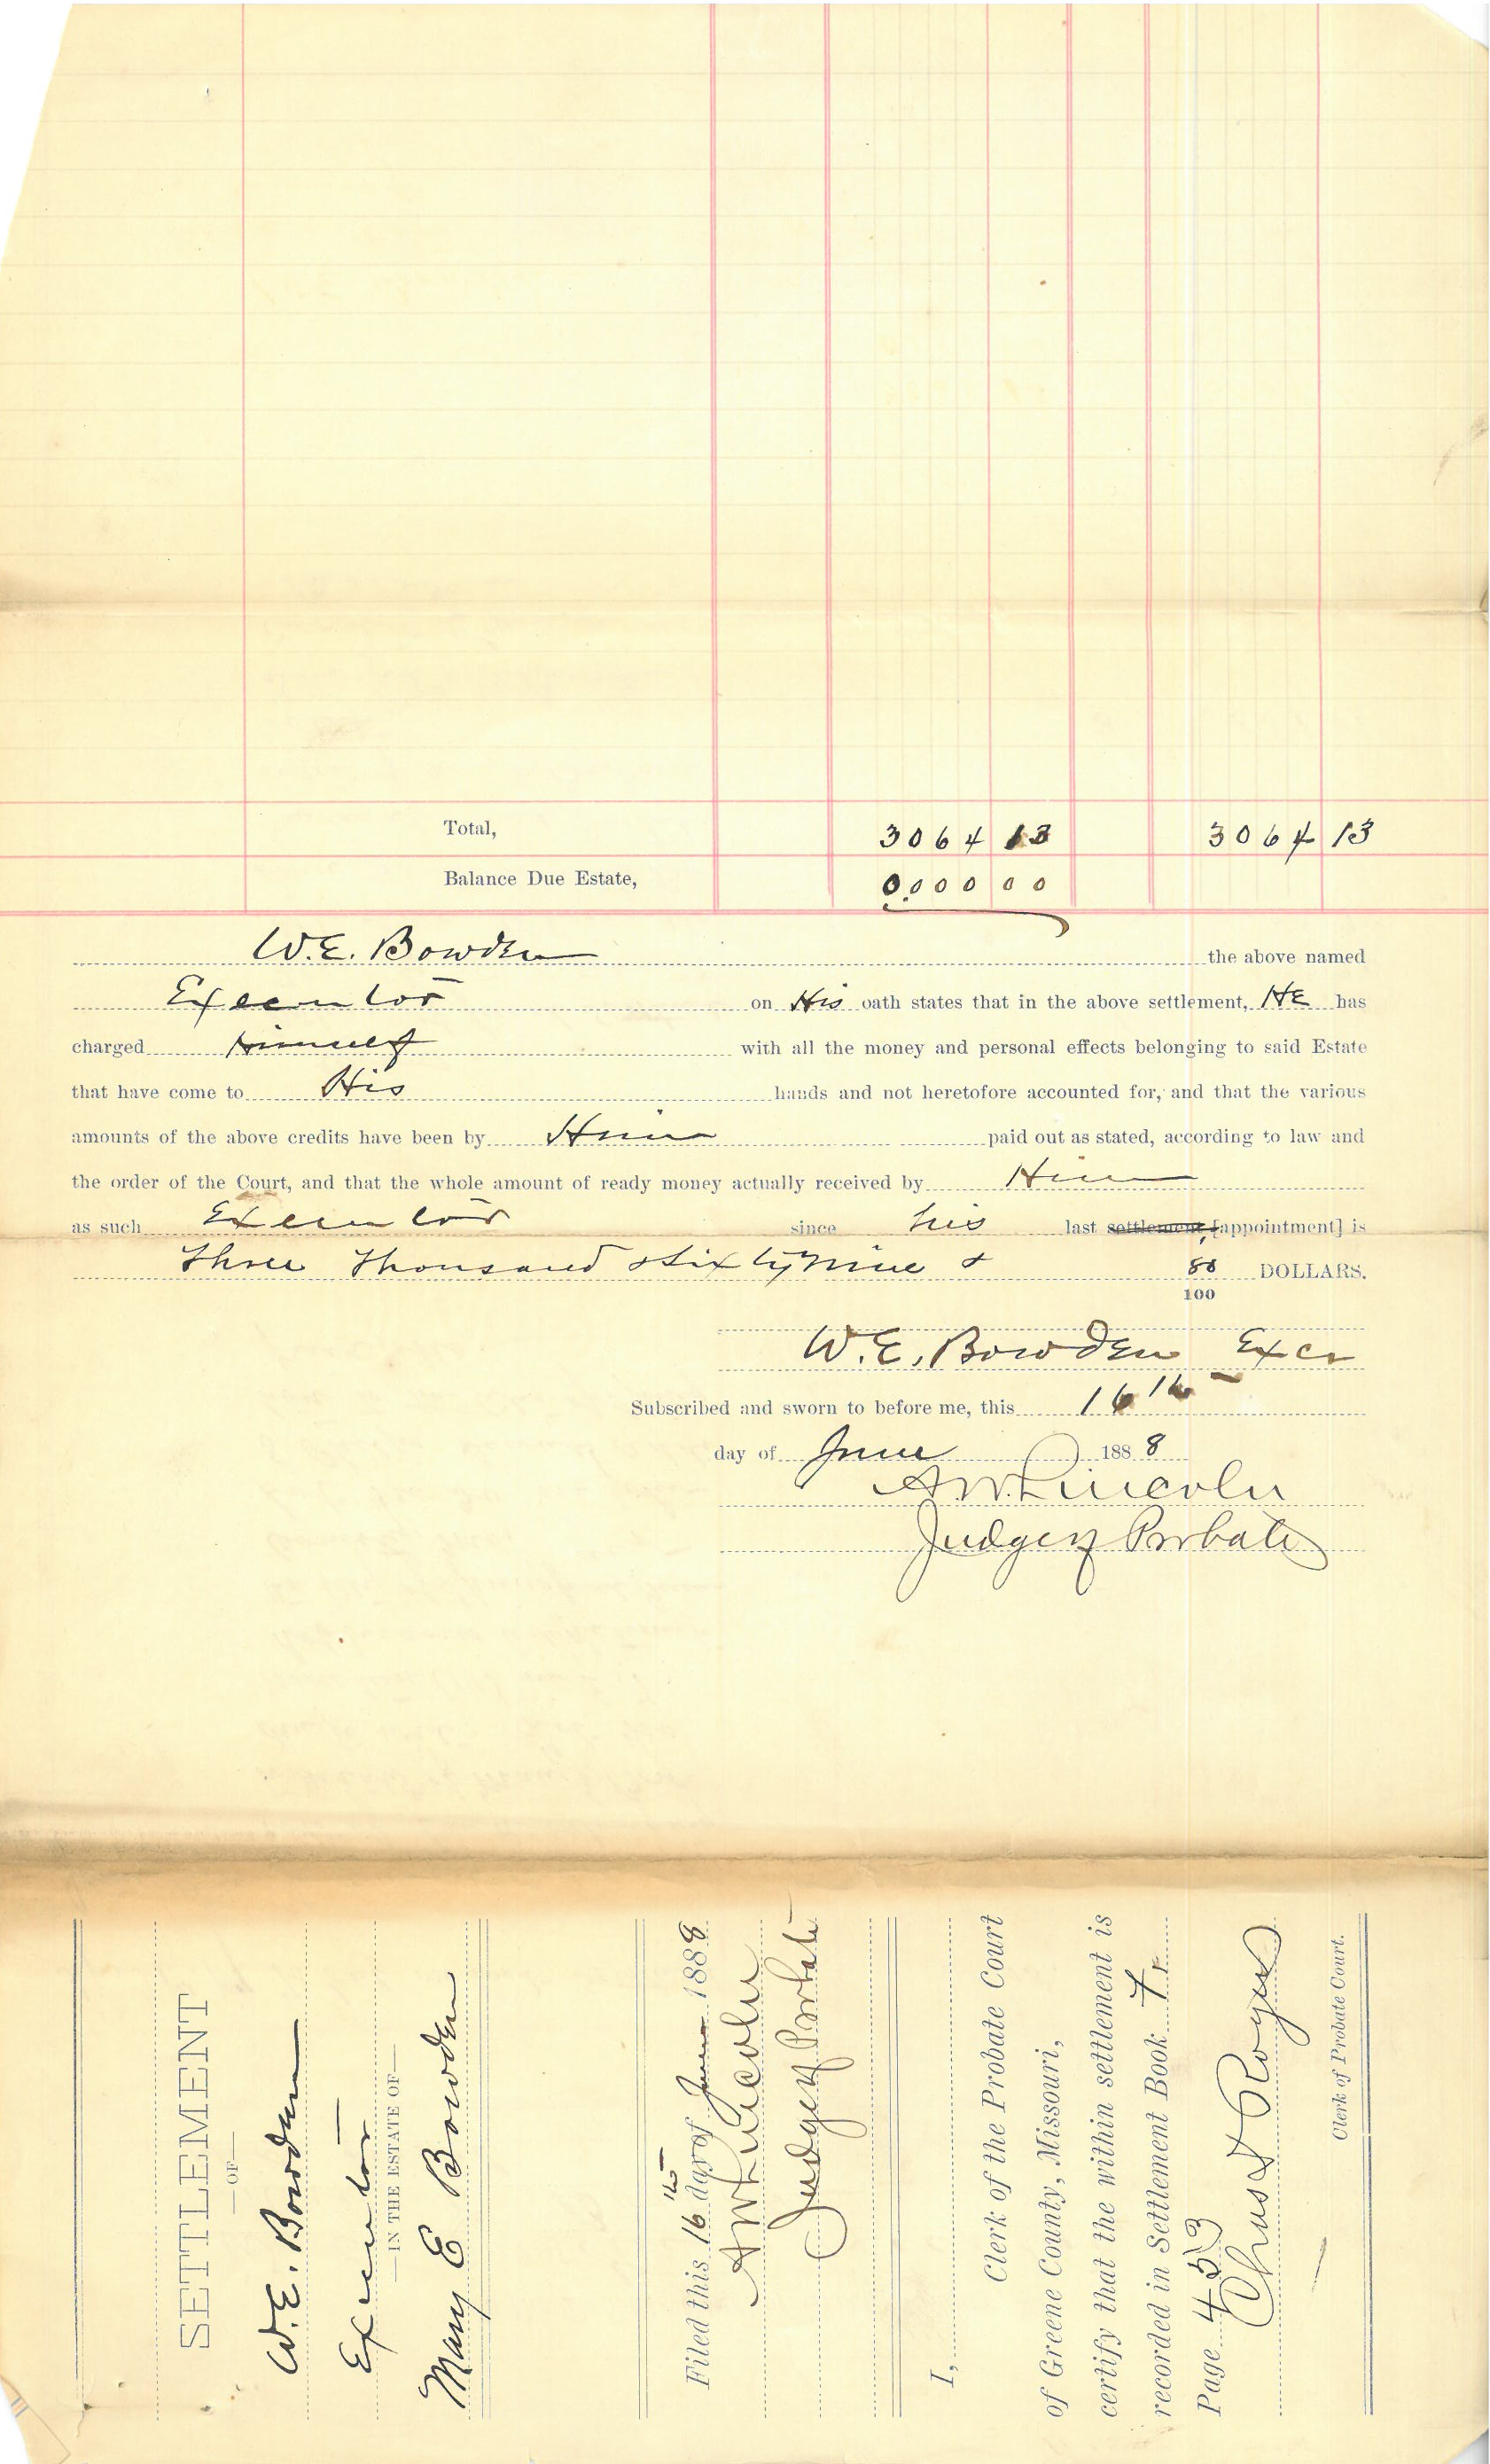 Total, 3064 13 3064 13
Balance Due Estate, 0.000 00
W.E. Bowden the above named
Executor on His oath states that in the above settlement, HE has
charged Himself with all the money and personal effects belonging to said Estate
that have come to His hands and not heretofore accounted for, and that the various
amounts of the above credits have been by Him paid out as stated, according to law and
the order of the Court, and that the whole amount of ready money actually received by Him
as such Executor since his last settlement, [appointment] is
Three Thousand & Sixty Nine & 80/100 DOLLARS.
W.E. Bowden Excr
Subscribed and sworn to before me, this 16th
day of June 1888
A.W. Lincoln
Judge of Probate
SETTLEMENT
—OF—
W.E. Bowden
Executor
—IN THE ESTATE OF—
Mary E Bowden
Filed this 16th day of June 1888
A W Lincoln
Judge of Probate
I,
Clerk of the Probate Court
of Greene County, Missouri,
certify that the within settlement is
recorded in Settlement Book
Page 453
Clerk of Probate Court.